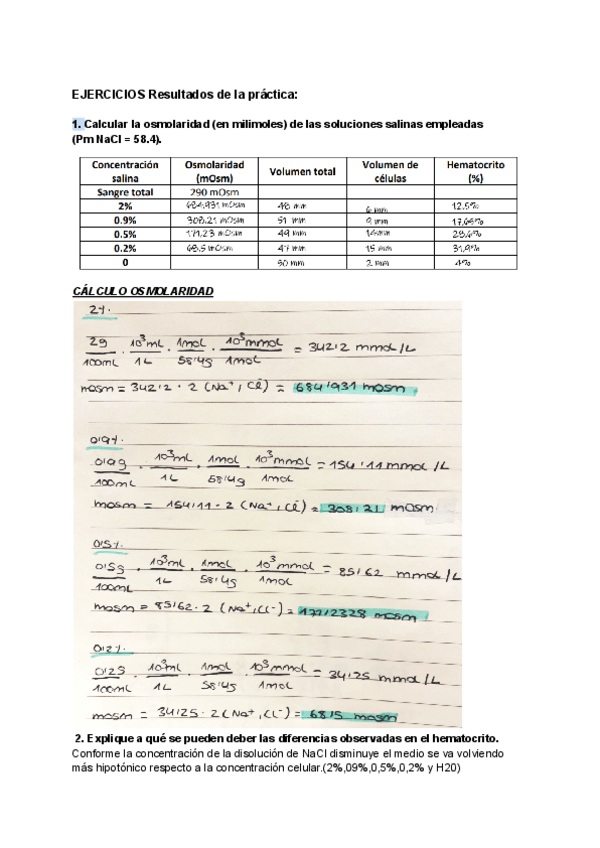 EJERCICIOS Resultados de la práctica:
1. Calcular la osmolaridad (en milimoles) de las soluciones salinas empleadas
(Pm NaCl = 58.4).
Concentración salina Osmolaridad (mOsm) Volumen total Volumen de células Hematocrito (%)
Sangre total 290 mOsm
2% 684,931 mOsm 48 mm 6 mm 12,5%
0.9% 308,21 mOsm 51 mm 9 mm 17,65%
0.5% 171,23 mOsm 49 mm 14 mm 28,6%
0.2% 68,5 mOsm 47 mm 15 mm 31,9%
0 50 mm 2 mm 4%
CÁLCULO OSMOLARIDAD
2%
2g/100mL · 10³mL/1L · 1mol/58,4g · 10³mmol/1mol = 342,2 mmol/L
mosm = 342,2 · 2 (Na⁺, Cl⁻) = 684,931 mosm
0,9%
0,9g/100mL · 10³mL/1L · 1mol/58,4g · 10³mmol/1mol = 154,11 mmol/L
mosm = 154,11 · 2 (Na⁺, Cl⁻) = 308,21 mosm
0,5%
0,5g/100mL · 10³mL/1L · 1mol/58,4g · 10³mmol/1mol = 85,62 mmol/L
mosm = 85,62 · 2 (Na⁺, Cl⁻) = mosm
0,2%
0,2g/100mL · 10³mL/1L · 1mol/58,4g · 10³mmol/1mol = 34,25 mmol/L
mosm = 34,25 · 2 (Na⁺, Cl⁻) = 68,5 mosm
2. Explique a qué se pueden deber las diferencias observadas en el hematocrito.
Conforme la concentración de la disolución de NaCl disminuye el medio se va volviendo
más hipotónico respecto a la concentración celular.(2%,09%,0,5%,0,2% y H20)